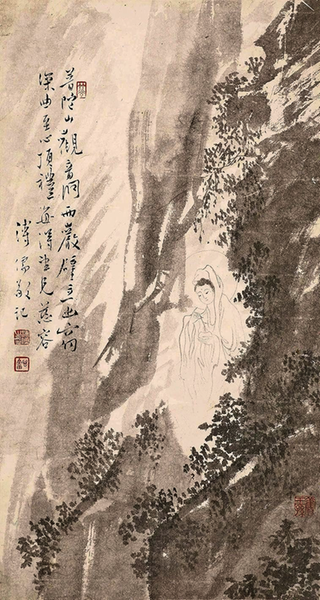 普陀山觀音洞兩巖壁立幽窅
深曲至心頂禮並得望見慈容
溥儒敬記